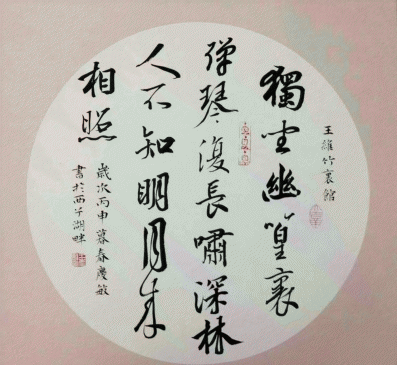 王維竹裏館
獨坐幽篁裏
彈琴復長嘯深林
人不知明月來
相照
歲次丙申暮春慶敏
書於西子湖畔